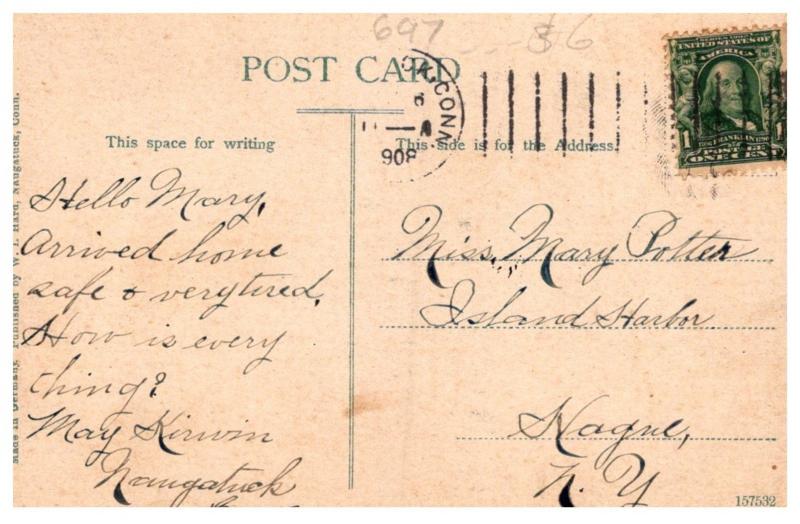 697 86
POST CARD
This space for writing
This side is for the Address.
Hello Mary,
Arrived home
safe & very tired,
How is every
thing?
May Kirwin
Naugatuck
Miss, Mary Potter
Island Harbor
Hague,
N. Y
CONN
908
SERIES 1902
UNITED STATES OF
AMERICA
FRANKLIN
POSTAGE
1 ONE CENT 1
Made in Germany. Published by W. L. Hard, Naugatuck, Conn.
157532